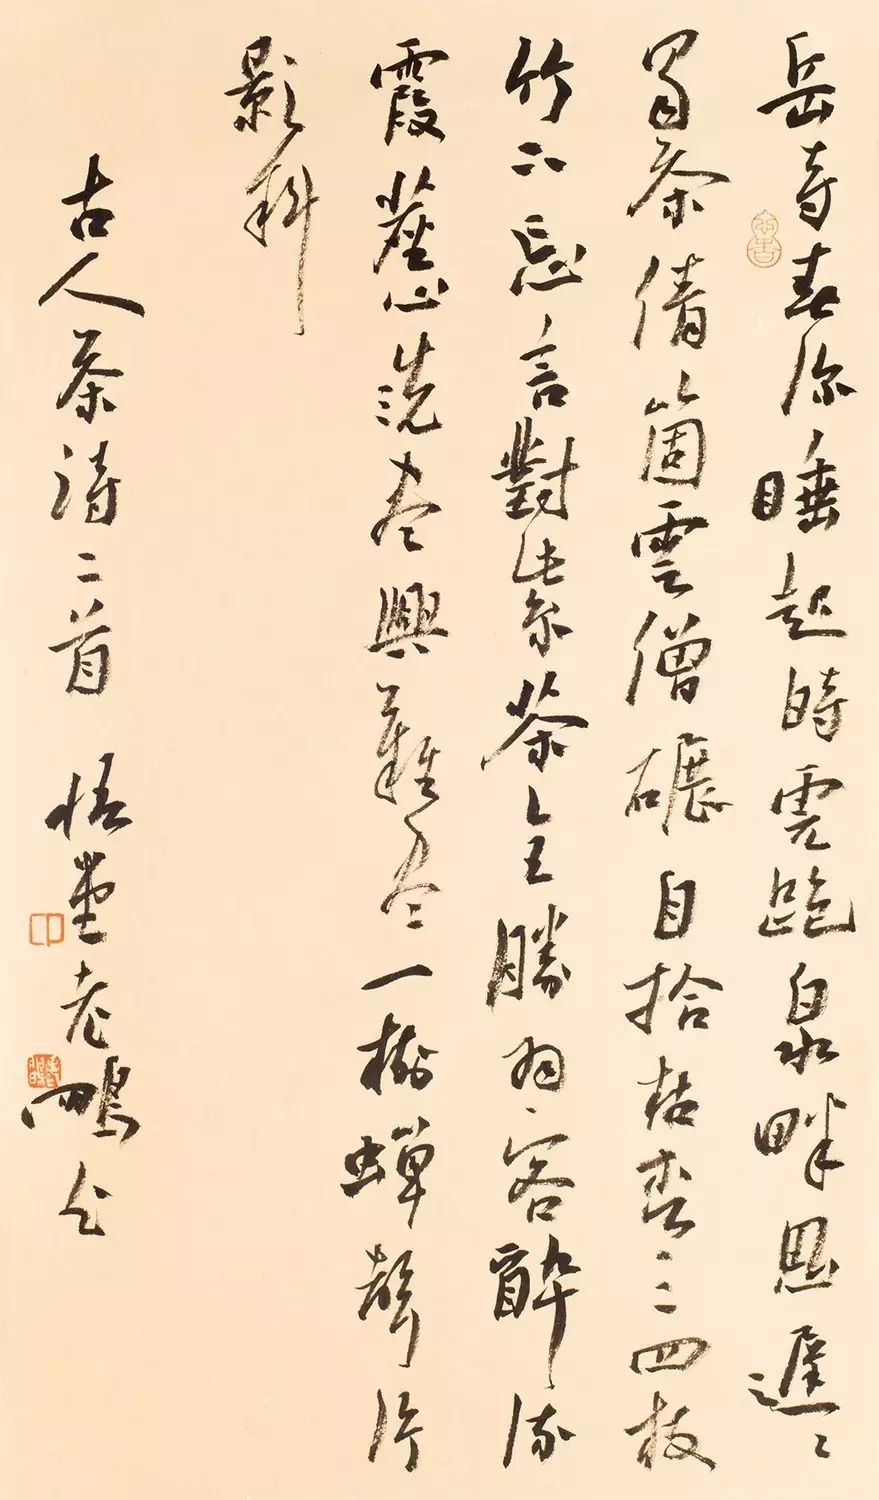 岳寺春深睡起時虎跑泉畔思遲〻
蜀茶倩箇雲僧碾自拾枯松三四枝
竹下忘言對紫茶全勝羽客醉流
霞塵心洗盡興難盡一樹蟬聲片
影斜
古人茶詩二首 悟堂老鵬